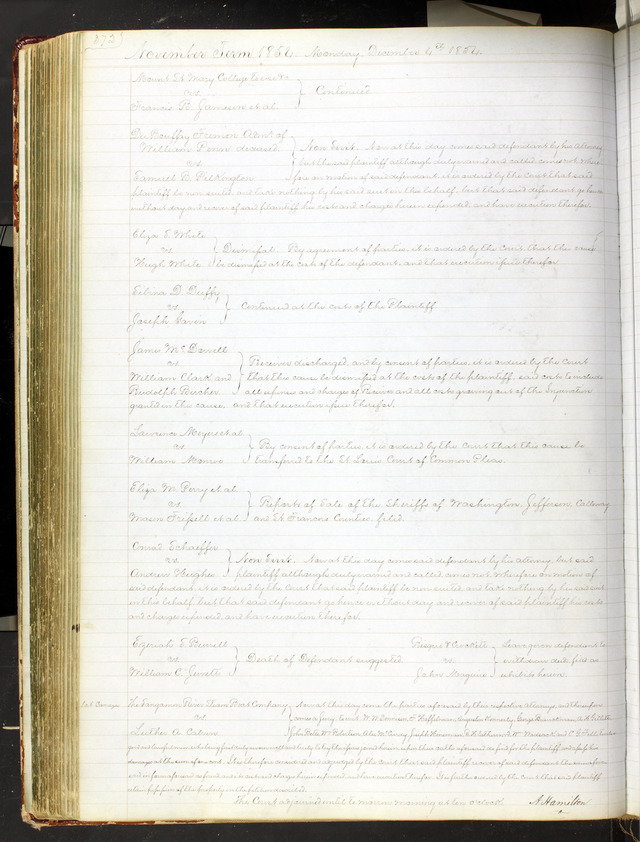 272
November Term 1854. Monday December 4th 1854.
Mount St Mary College
vs } Continued
Francis B. Jameson et al
De Bouffay Fremon Admr. of
William Penn deceased } Non Suit. Now at this day comes said defendant by his Attorney
vs but the said plaintiff although duly warned and called comes not
Samuel B. Pilkington for on motion of said defendant it is ordered by the Court that said
plaintiff be non suited and take nothing by his said suit in this behalf, but that said defendant go hence
without day and recover of said plaintiff his costs and charges herein expended, and have execution therefor.
Eliza T. White
vs } Dismissed. By agreement of parties, it is ordered by the Court, that this cause
Hugh White be dismissed at the costs of the defendant, and that execution issue therefor
D. Duffy
vs } Continued at the costs of the Plaintiff
Joseph
James McDowell
vs } Receiver discharged, and by consent of parties, it is ordered by the Court
William Clark and that this cause be dismissed at the costs of the plaintiff, said costs to include
Rudolph Bircher all expenses and charges of Receiver and all costs growing out of the Injunction
granted in this cause and that execution issue therefor.
Lawrence Meyers et al
vs } By consent of parties it is ordered by the Court that this cause be
William Monroe transferred to the St Louis Court of Common Pleas.
Eliza M. Perry et al
vs } Reports of Sale of the Sheriffs of Washington, Jefferson, Callaway
Mason Frissell et al and St Francois Counties, filed.
Conrad Schaeffer
vs } Non Suit. Now at this day comes said defendant by his attorney, but said
Andrew Hughes plaintiff although duly warned and called comes not, wherefore on motion of
said defendant, it is ordered by the Court that said plaintiff be nonsuited, and take nothing by his said suit
in this behalf, but that said defendant go hence without day and recover of said plaintiff his costs
and charges expended and have execution therefor.
vs } Death of Defendant suggested
William C. Jewett
& Crockett
vs } Leave given defendant to
John Maguire withdraw deed filed as
exhibit herein.
The Sangamon River Steam Boat Company } Now at this day come the parties aforesaid by their respective Attorneys, and thereupon
vs comes a Jury to wit
Luther A. Calvin
damages at the sum of one cent. It is therefore considered and adjudged by the Court that said plaintiff recover of said defendant
It is further ordered by the Court that said plaintiff
The Court adjourned until to morrow morning at ten o'clock. A. Hamilton